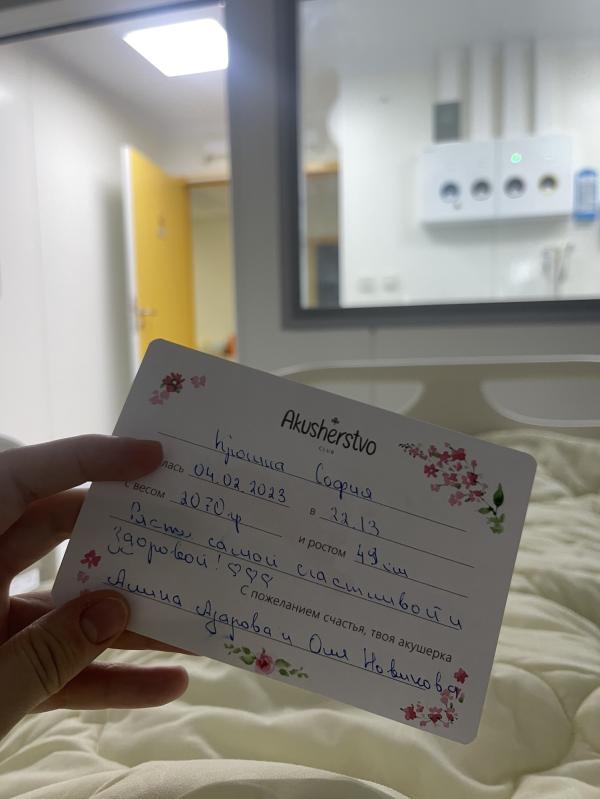 Akusherstvo
CLUB
Крошка София
лась 04.02.2023 в 22.13
с весом 2070 гр и ростом 49 см
Расти самой счастливой и
здоровой! ♡♡♡
С пожеланием счастья, твоя акушерка
Алина Азарова и Оля Новикова